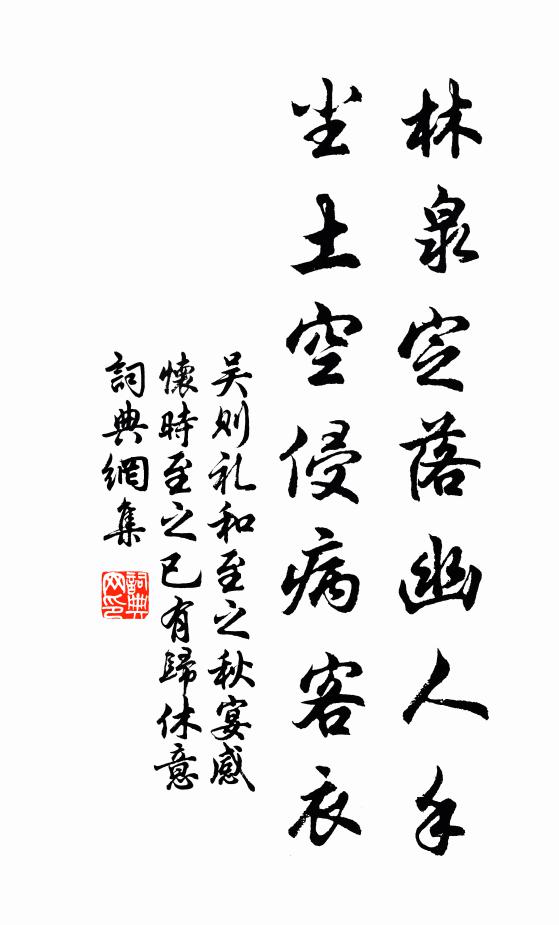 林泉定落幽人手
尘土空侵病客衣
吴则礼和至之秋宴感
懷時至之已有歸休意
詞典網集
詞典网印